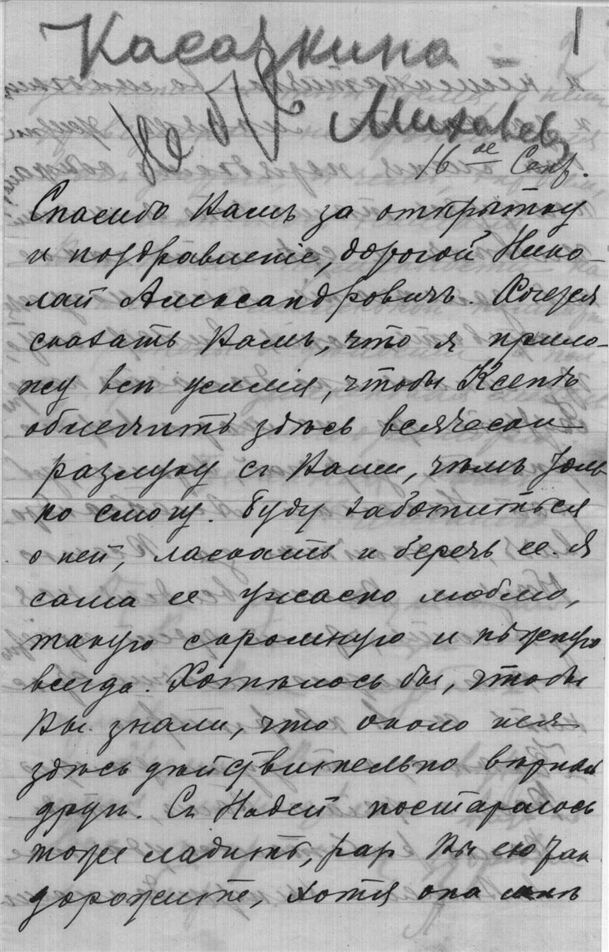 Касаткина
1
16ое Сент.
Спасибо Вамъ за открытку
и поздравленіе, дорогой Нико-
лай Александровичъ. Хочется
сказать Вамъ, что я прило-
жу всѣ усилія, чтобы Ксенѣ
облегчить здѣсь всячески
разлуку съ Вами, чѣмъ толь
ко смогу. Буду заботиться
о ней, ласкать и беречь ее. Я
сама ее ужасно люблю,
такую скромную и нѣжную
всегда. Хотѣлось бы, чтобы
Вы знали, что около нея
здѣсь дѣйствительно вѣрный
другъ. Съ Надей постараюсь
тоже ладить, раз Вы ею так
дорожите, хотя она мнѣ